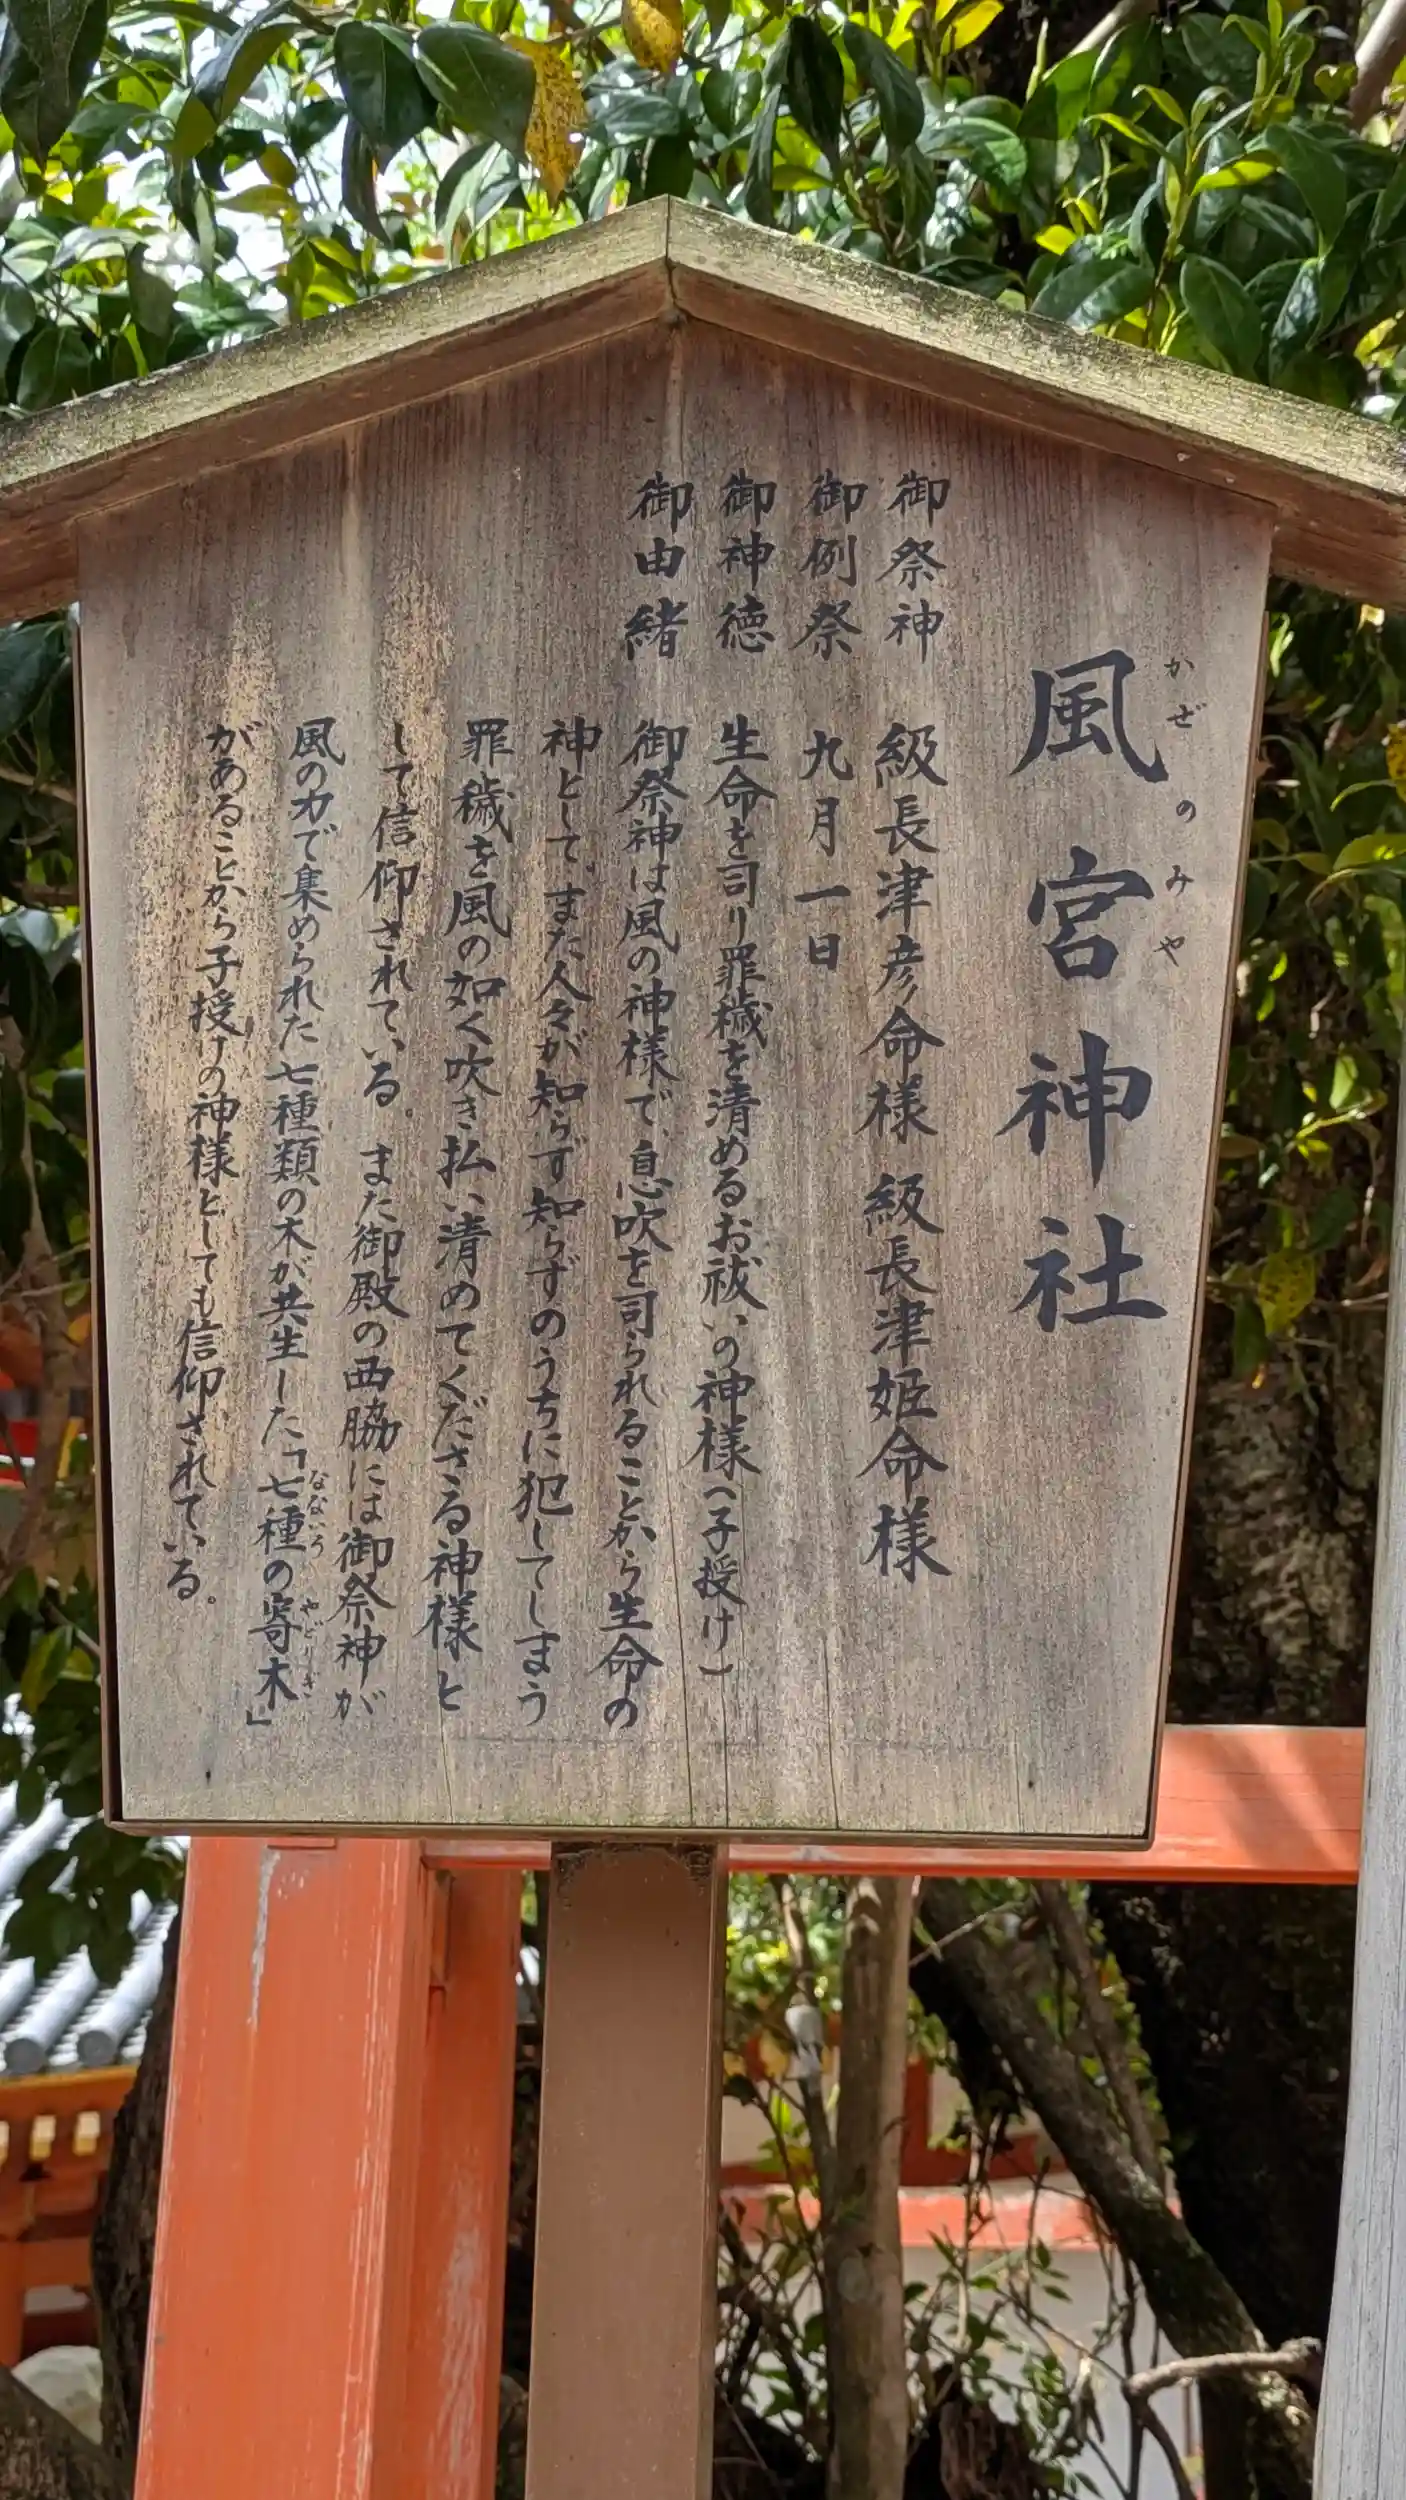 風宮神社
かぜのみや
御祭神 級長津彦命様 級長津姫命様
御例祭 九月一日
御神徳 生命を司り罪穢を清めるお祓いの神様(子授け)
御由緒 御祭神は風の神様で、息吹を司られることから生命の
神として。また人々が知らず知らずのうちに犯してしまう
罪穢を風の如く吹き払い清めてくださる神様と
して信仰されている。また御殿の西脇には御祭神が
風の力で集められた七種類の木が共生した「七種の寄木」
なないろ やどりぎ
があることから子授けの神様としても信仰されている。